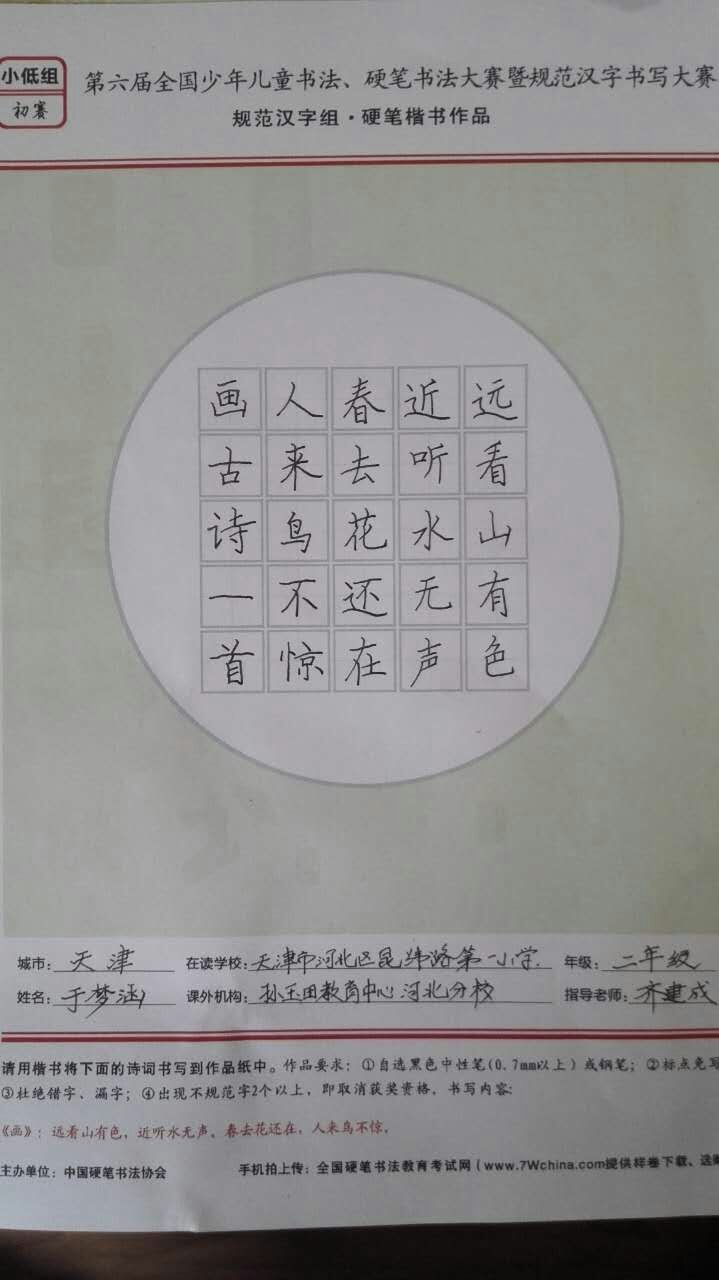 小低组
初赛
第六届全国少年儿童书法、硬笔书法大赛暨规范汉字书写大赛
规范汉字组·硬笔楷书作品
远看山有色
近听水无声
春去花还在
人来鸟不惊
画古诗一首
城市：天津 在读学校：天津市河北区昆纬路第一小学 年级：二年级
姓名：于梦涵 课外机构：孙玉田教育中心河北分校 指导老师：齐建成
请用楷书将下面的诗词书写到作品纸中。作品要求：①自选黑色中性笔(0.7mm以上）或钢笔；②标点免写
③杜绝错字、漏字；④出现不规范字2个以上，即取消获奖资格。书写内容:
《画》：远看山有色，近听水无声。春去花还在，人来鸟不惊。
主办单位：中国硬笔书法协会 手机拍上传：全国硬笔书法教育考试网（www.7Wchina.com提供样卷下载、送